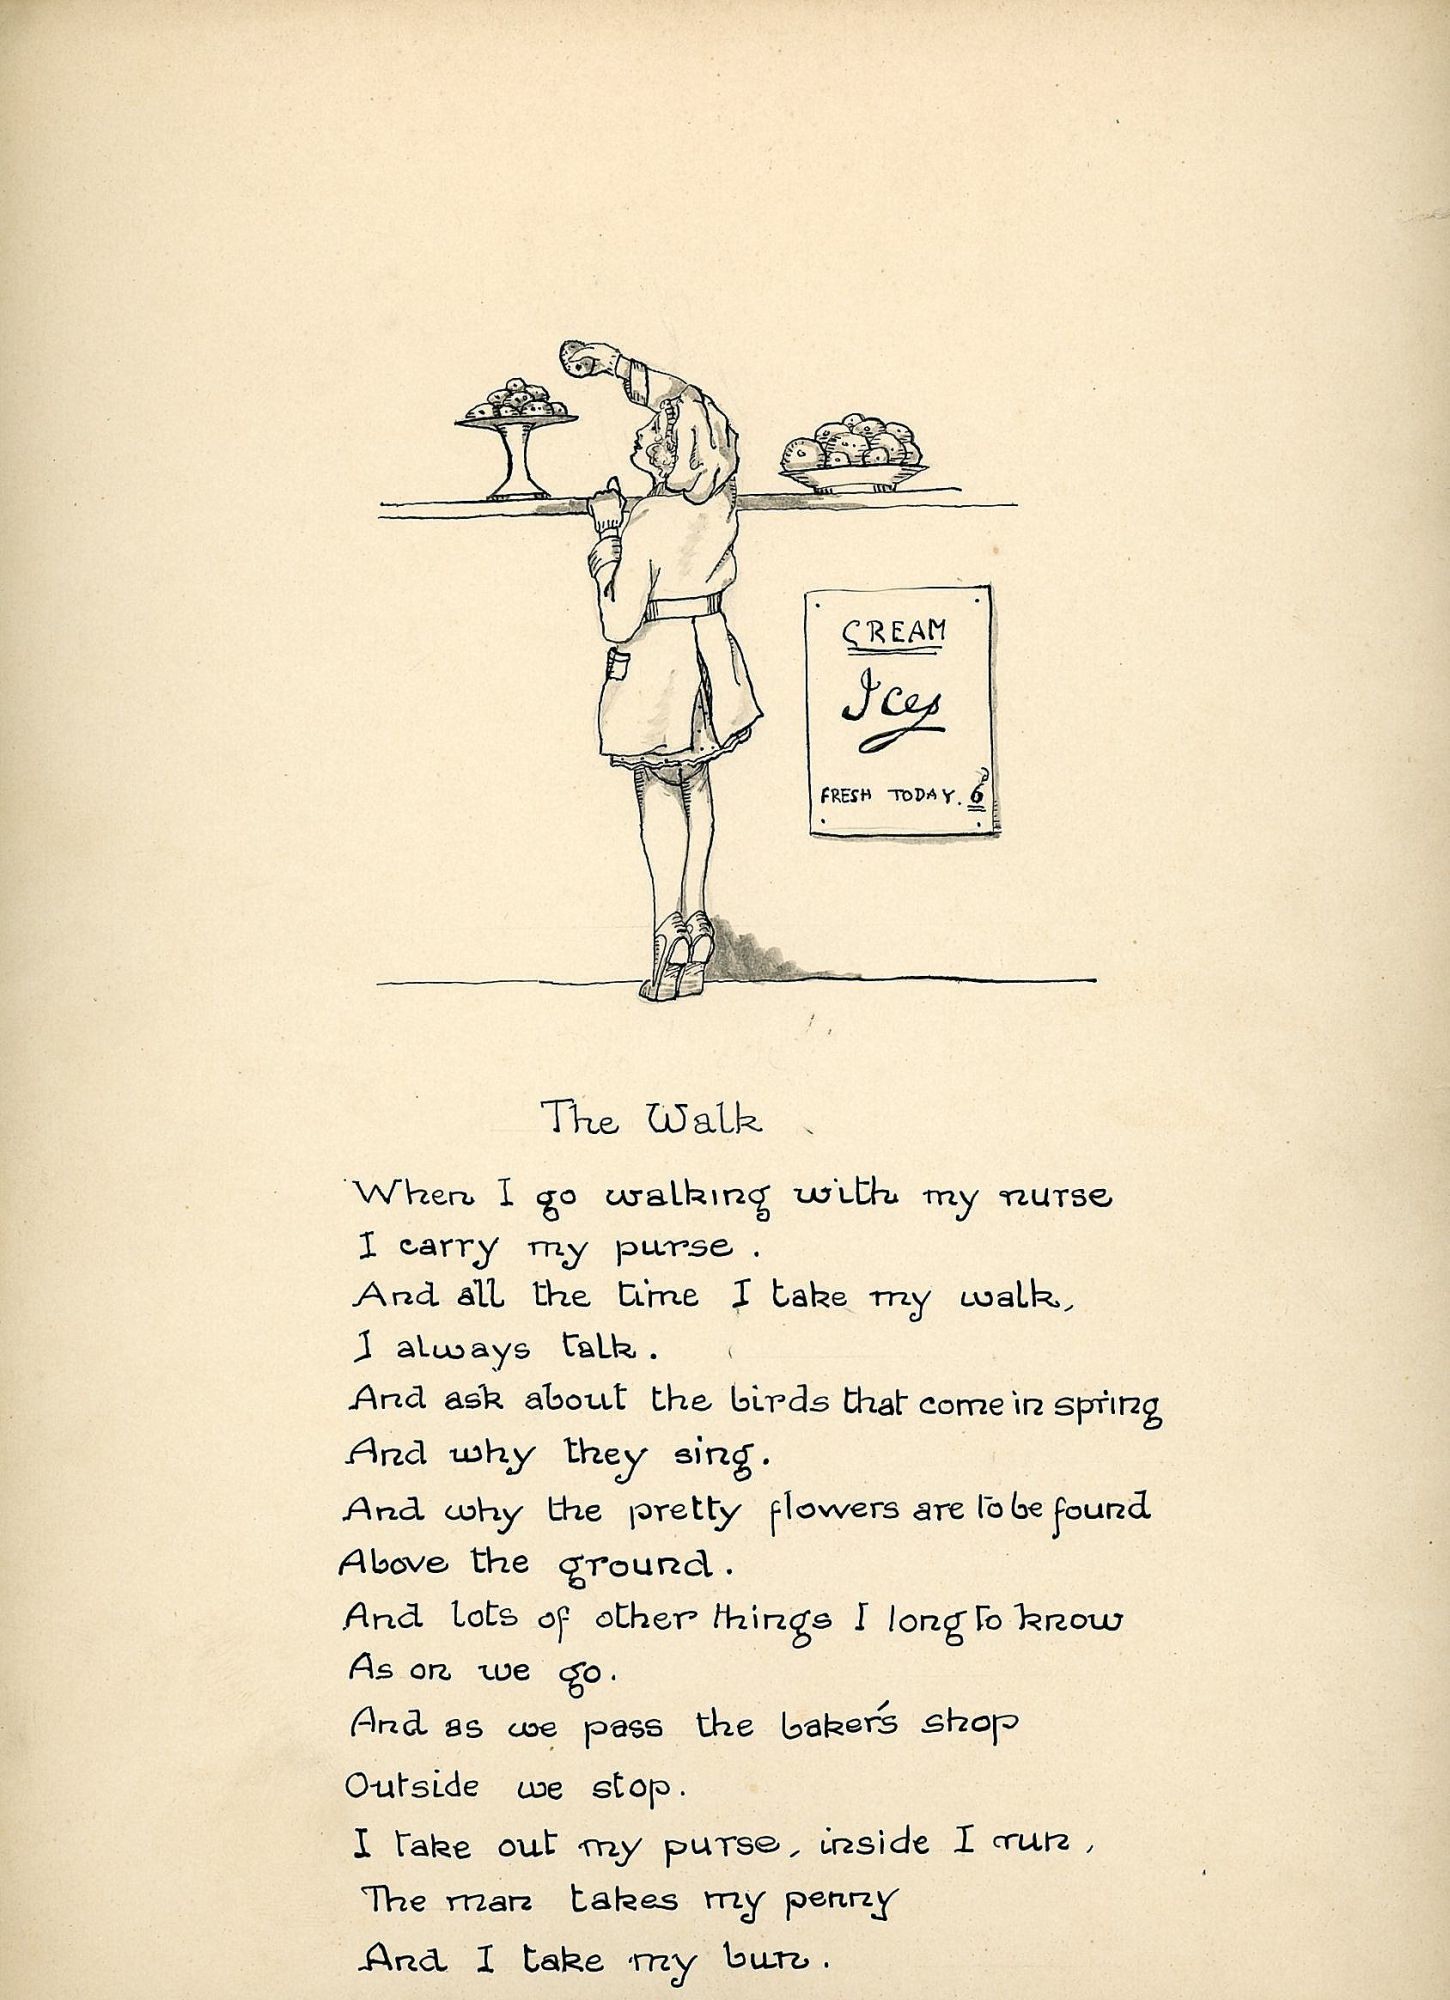 CREAM
Ices
FRESH TODAY. 6
The Walk
When I go walking with my nurse
I carry my purse.
And all the time I take my walk,
I always talk.
And ask about the birds that come in spring
And why they sing.
And why the pretty flowers are to be found
Above the ground.
And lots of other things I long to know
As on we go.
And as we pass the baker's shop
Outside we stop.
I take out my purse, inside I run,
The man takes my penny
And I take my bun.